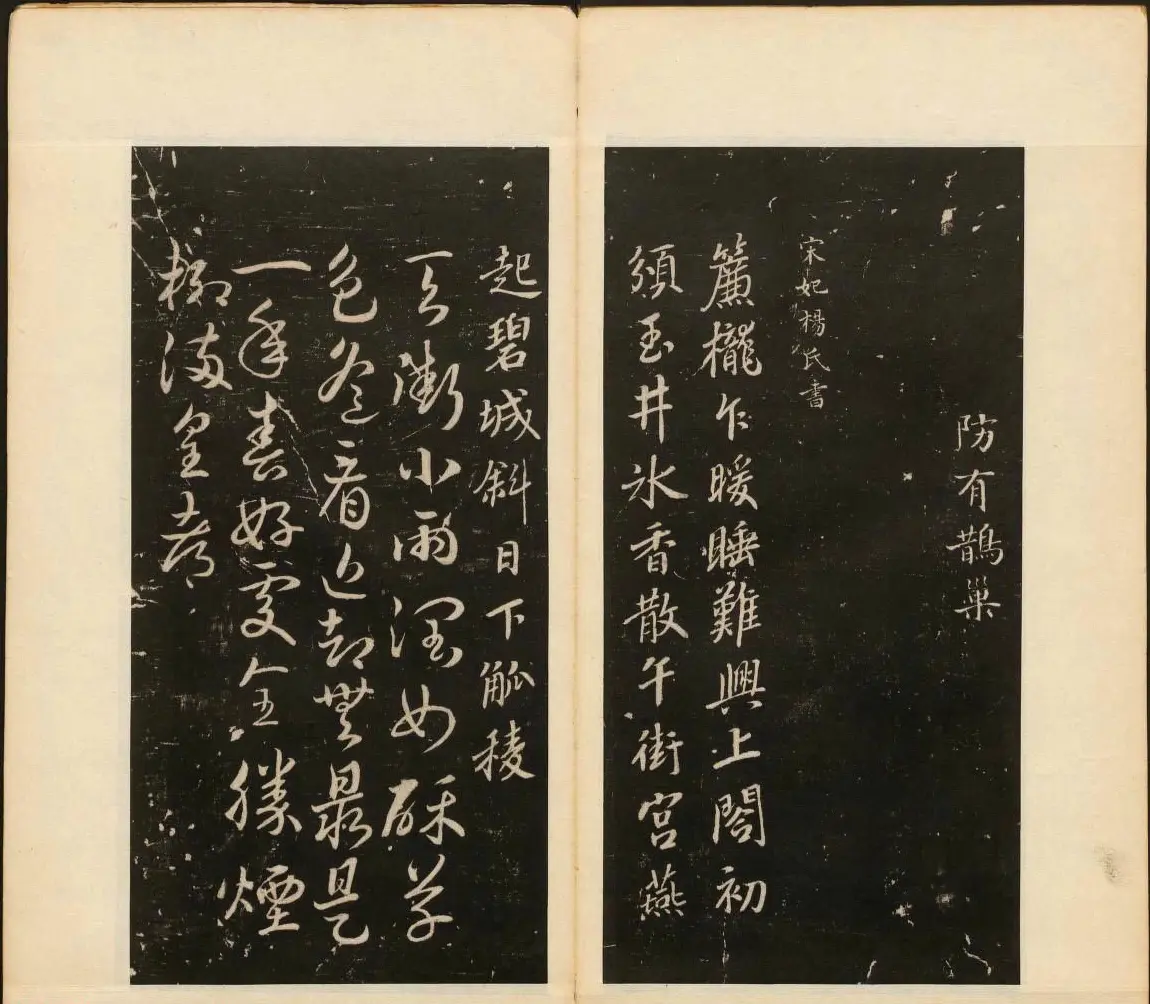 防有鵲巢
宋妃楊氏書
簾櫳乍暖睡難興上閣初
頒玉井氷香散午街宮燕
起碧城斜日下觚稜
天街小雨潤如酥草
色遙看近却無最是
一年春好處全勝煙
柳滿皇都